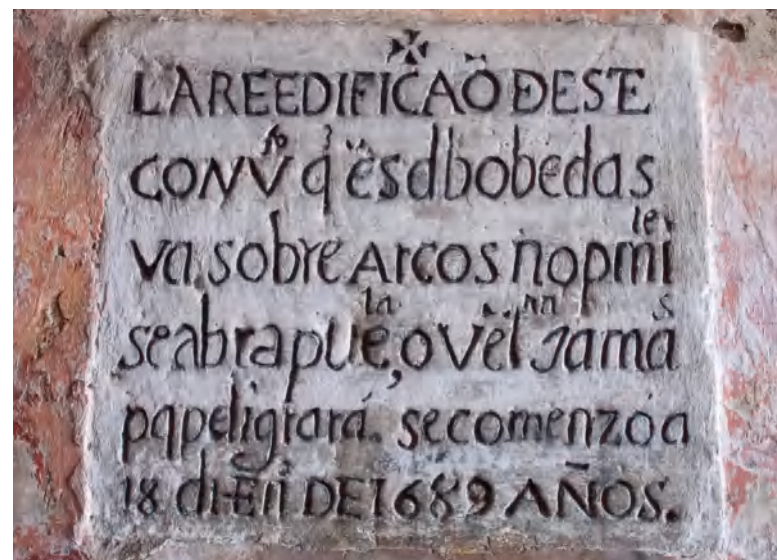 LA REEDIFICAÕ DESTE
CONVᵗᵒ q̃ ës d bobedas
va sobre Arcos no pmiᵗᵉⁿ
se abra pueᵗᵃ, o vëlⁿⁿ Jamaˢ
pq peligrará. se comenzó a
18 di En̄ DE 1689 AÑOS.